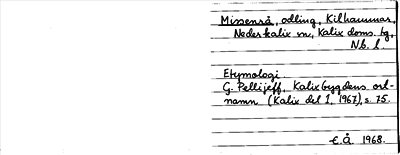 Missenså, odling, Kilhammar,
Nederkalix sn, Kalix doms. tg,
Nb. l.
Etymologi
G. Pellijeff, Kalixbygdens ort-
namn (Kalix del 1, 1967), s. 75.
E.Å 1968.